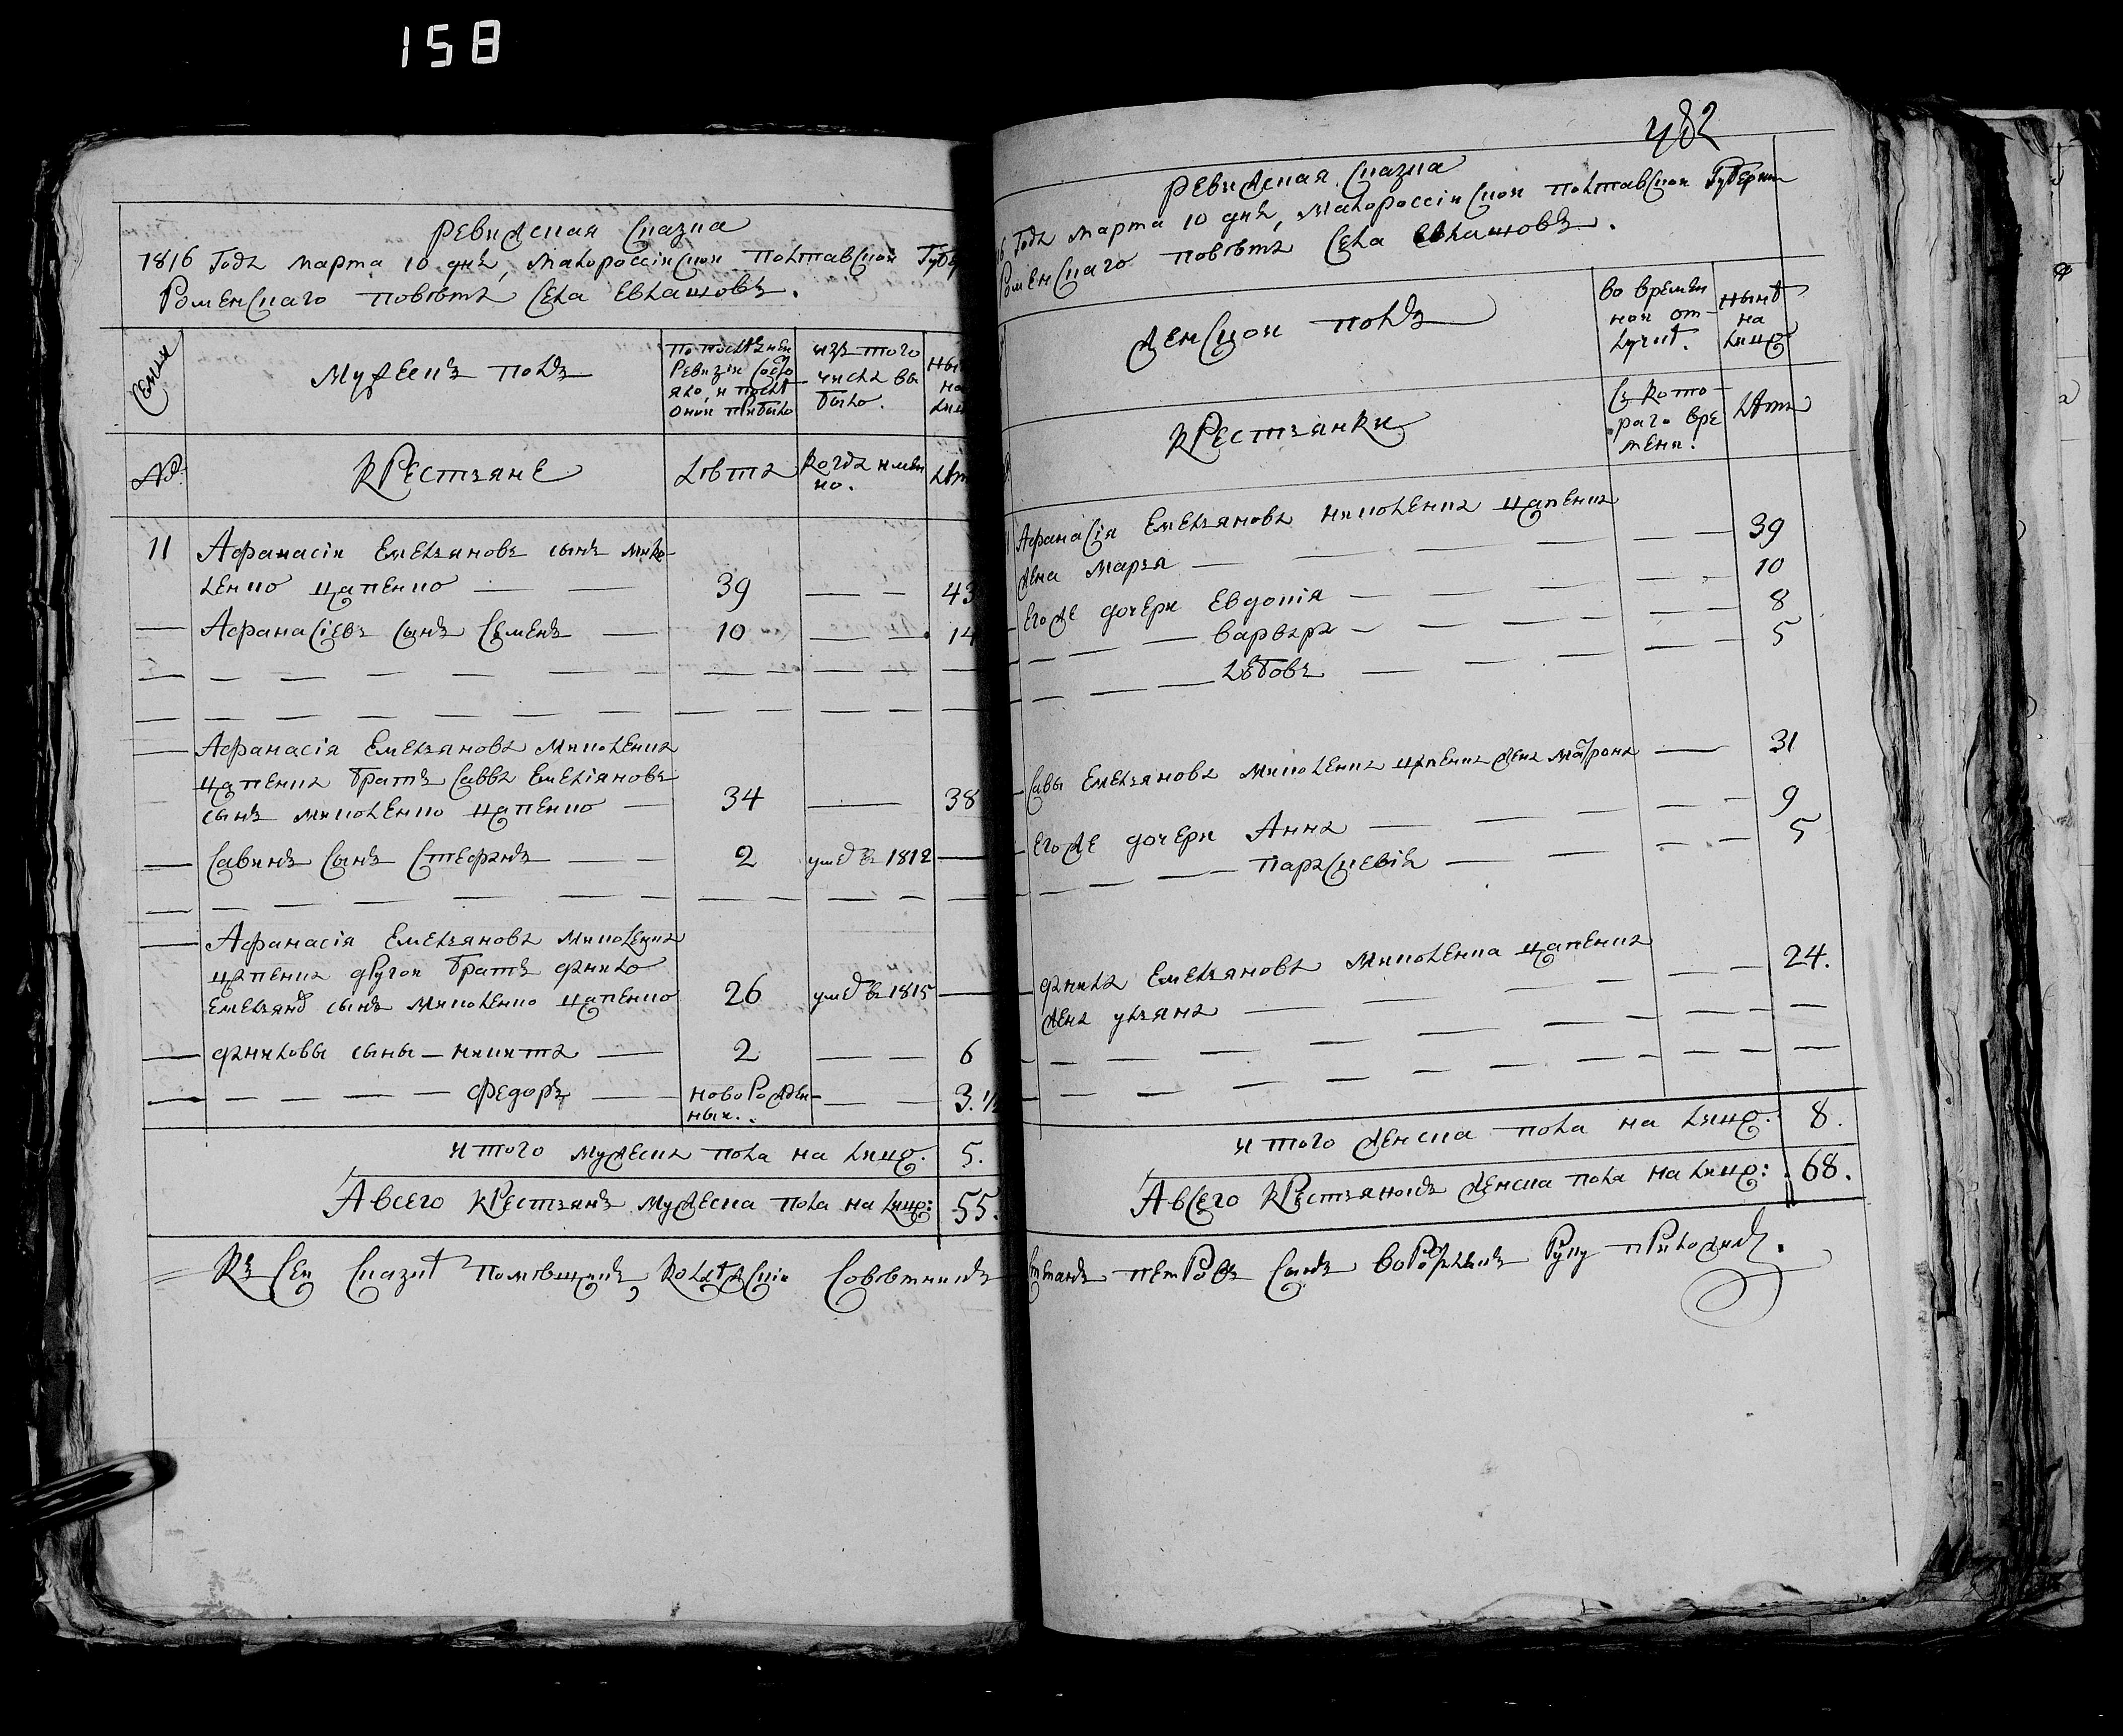 158
Ревизская Сказка
1816 Года Марта 10 днѣ, Малороссійской Полтавской Губер
Роменскаго повѣта Села Евлашовъ.
Семья
Мужескъ полъ
По последней Ревизіи состояло, и после оной прибыло
изъ того числа выбыло.
Ны на лиц
№
Крестьяне
Лѣта
Когда именно.
Лѣт
11 Афанасій Емельяновъ сынъ Мико-
ленко Цапенко — — 39 — — 43
— Афанасіевъ сынъ Семенъ — 10 — — 14
— Афанасія Емельянова Миколенка
Цапенка братъ Савва Емеліяновъ
сынъ Миколенко Цапенко — 34 — 38
— Савинъ сынъ Стефанъ — — 2 умер въ 1812 —
— Афанасія Емельянова Миколенка
Цапенка другой братъ Данило
Емельянов сынъ Миколенко Цапенко 26 умер въ 1815 —
— Даниловы сыны — Никита — 2 — — 6
— — — — — Федоръ — новорожден-
ный. — — 3. 1/2
Итого мужеска пола на лицо. 5.
А всего крестьянъ мужеска пола на лицо: 55.
Къ сей Сказке Помещикъ, Колежскій Советникъ
482
Ревизская Сказка
16 Года Марта 10 днѣ, Малороссійской Полтавской Губернии
Роменскаго повѣта Села Евлашовъ.
Женской полъ
Во временной отлучке.
Ныне на лицо
Крестьянки
Съ котораго времени.
Лѣта
Афанасія Емельянова Миколенка Цапенка
жена Марья — — — — — — 39
Его же дочери Евдокія — — — — — 10
— — — — Варвара — — — — — — 8
— — — — Любовъ — — — — — 5
Савы Емельянова Миколенка Цапенка жена Матрона — 31
Его же дочери Анна — — — — — 9
— — — — Параскевія — — — — 5
Данила Емельянова Миколенка Цапенка
жена Ульяна — — — — — — 24.
Итого женска пола на лицо. 8.
А всего Крестьянокъ женска пола на лицо: 68.
Степанъ Петровъ Сынъ руку приложилъ.